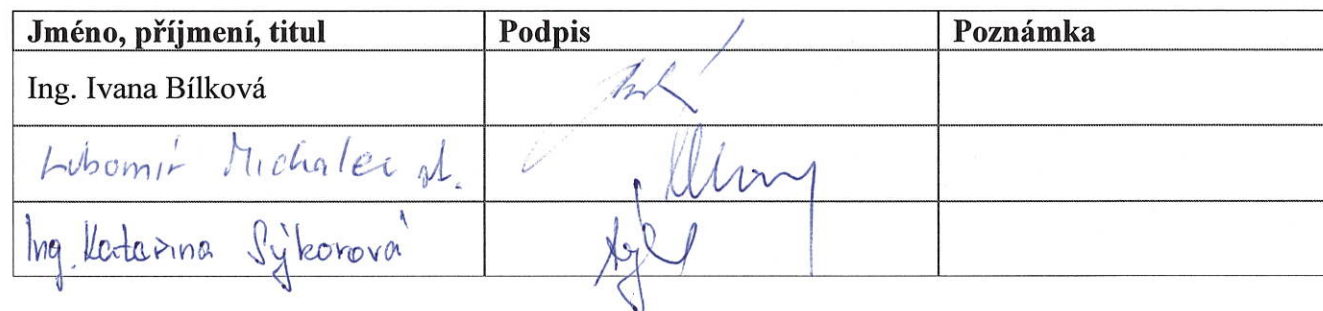 Jméno, příjmení, titul Podpis Poznámka
Ing. Ivana Bílková
Lubomír Michalec st.
Ing. Katarína Sýkorová